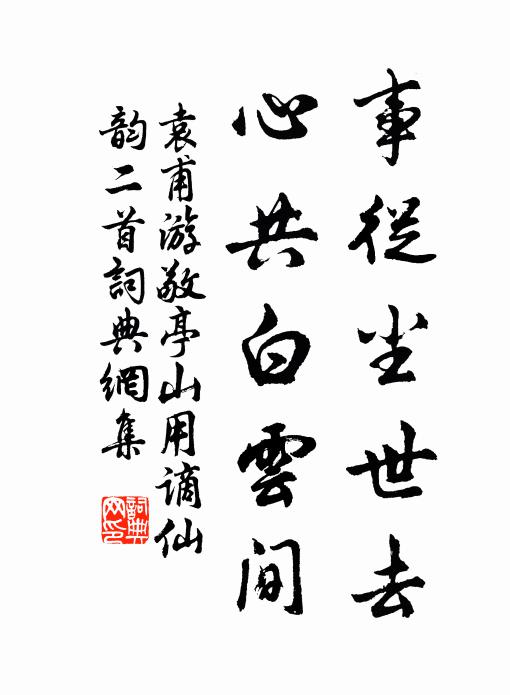 事從尘世去
心共白雲间
袁甫游敬亭山用谪仙
韵二首詞典網集
詞典
网印